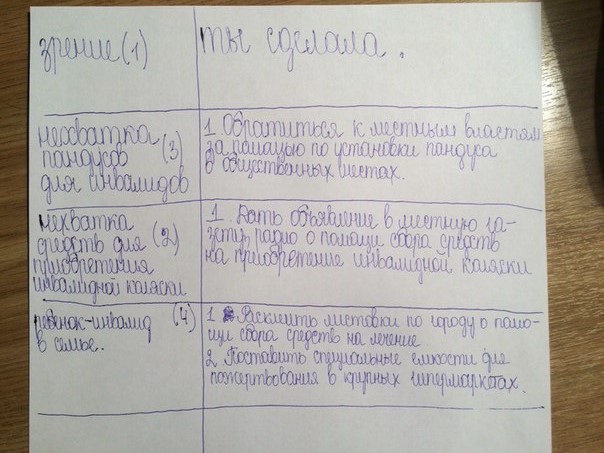 зрение (1)
ты сделала.
нехватка
пандусов (3)
для инвалидов
1. Обратиться к местным властям
за помощью по установки пандуса
в общественных местах.
нехватка
средств для (2)
приобретения
инвалидной коляски
1. Дать объявление в местную га-
зету, радио о помощи сбора средств
на приобретение инвалидной коляски
ребенок-инвалид (4)
в семье.
1 Расклеить листовки по городу о помо-
щи сбора средств на лечение
2 Поставить специальные емкости для
пожертвования в крупных гипермаркетах.